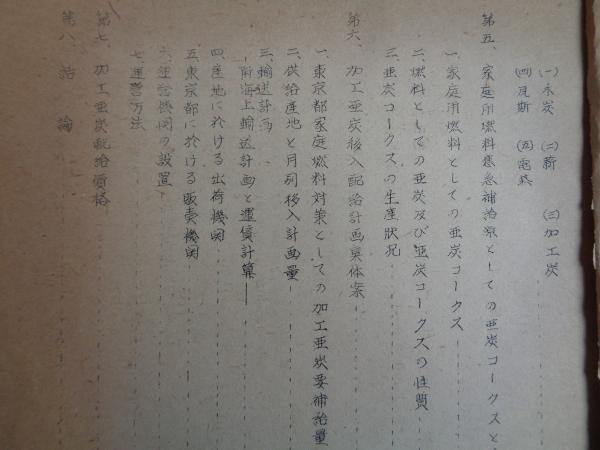 (一)木炭 (二)薪 (三)加工炭
(四)瓦斯 (五)電気
第五、家庭用燃料緊急補給源としての亜炭コークスと
一、家庭用燃料としての亜炭コークス
二、燃料としての亜炭及び亜炭コークスの性質
三、亜炭コークスの生産状況
第六、加工亜炭移入配給計画具体案
一、東京都家庭燃料対策としての加工亜炭要補給量
二、供給産地と月別移入計画量
三、輸送計画
附海上輸送計画と運賃計算
四、産地に於ける出荷機関
五、東京都に於ける販売機関
六、運営機関の設置
七、運営方法
第七、加工亜炭配給価格
第八、結論